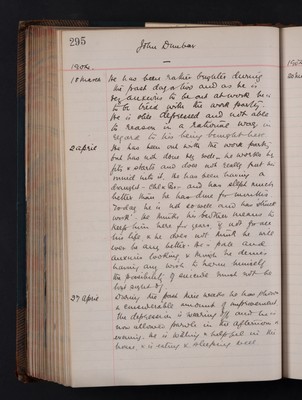 295
John Dunbar
1904.
18 March He has been rather brighter during
the past day or two and as he is
very anxious to be out at work he is
to be tried with the wood party.
He is often depressed and not able
to reason in a rational way in
regard to his being brought here
2 April He has been out with the wood party
but has not done very well. He works by
fits & starts and does not really put his
mind into it. He has been having a
draught - and has slept much
better than he has done for months
Today he is not so well and has struck
work. He thinks his brother means to
keep him here for years, if not for all
his life & he does not think he will
ever be any better. He is pale and
anxious looking & though he denies
having any wish to harm himself
the possibility of suicide must not be
lost sight of.
27 April During the past three weeks he has shown
a considerable amount of improvement
the depression is wearing off and he is
now allowed parole in the afternoon &
evening. He is willing & helpful in the
house, & is eating & sleeping well
190